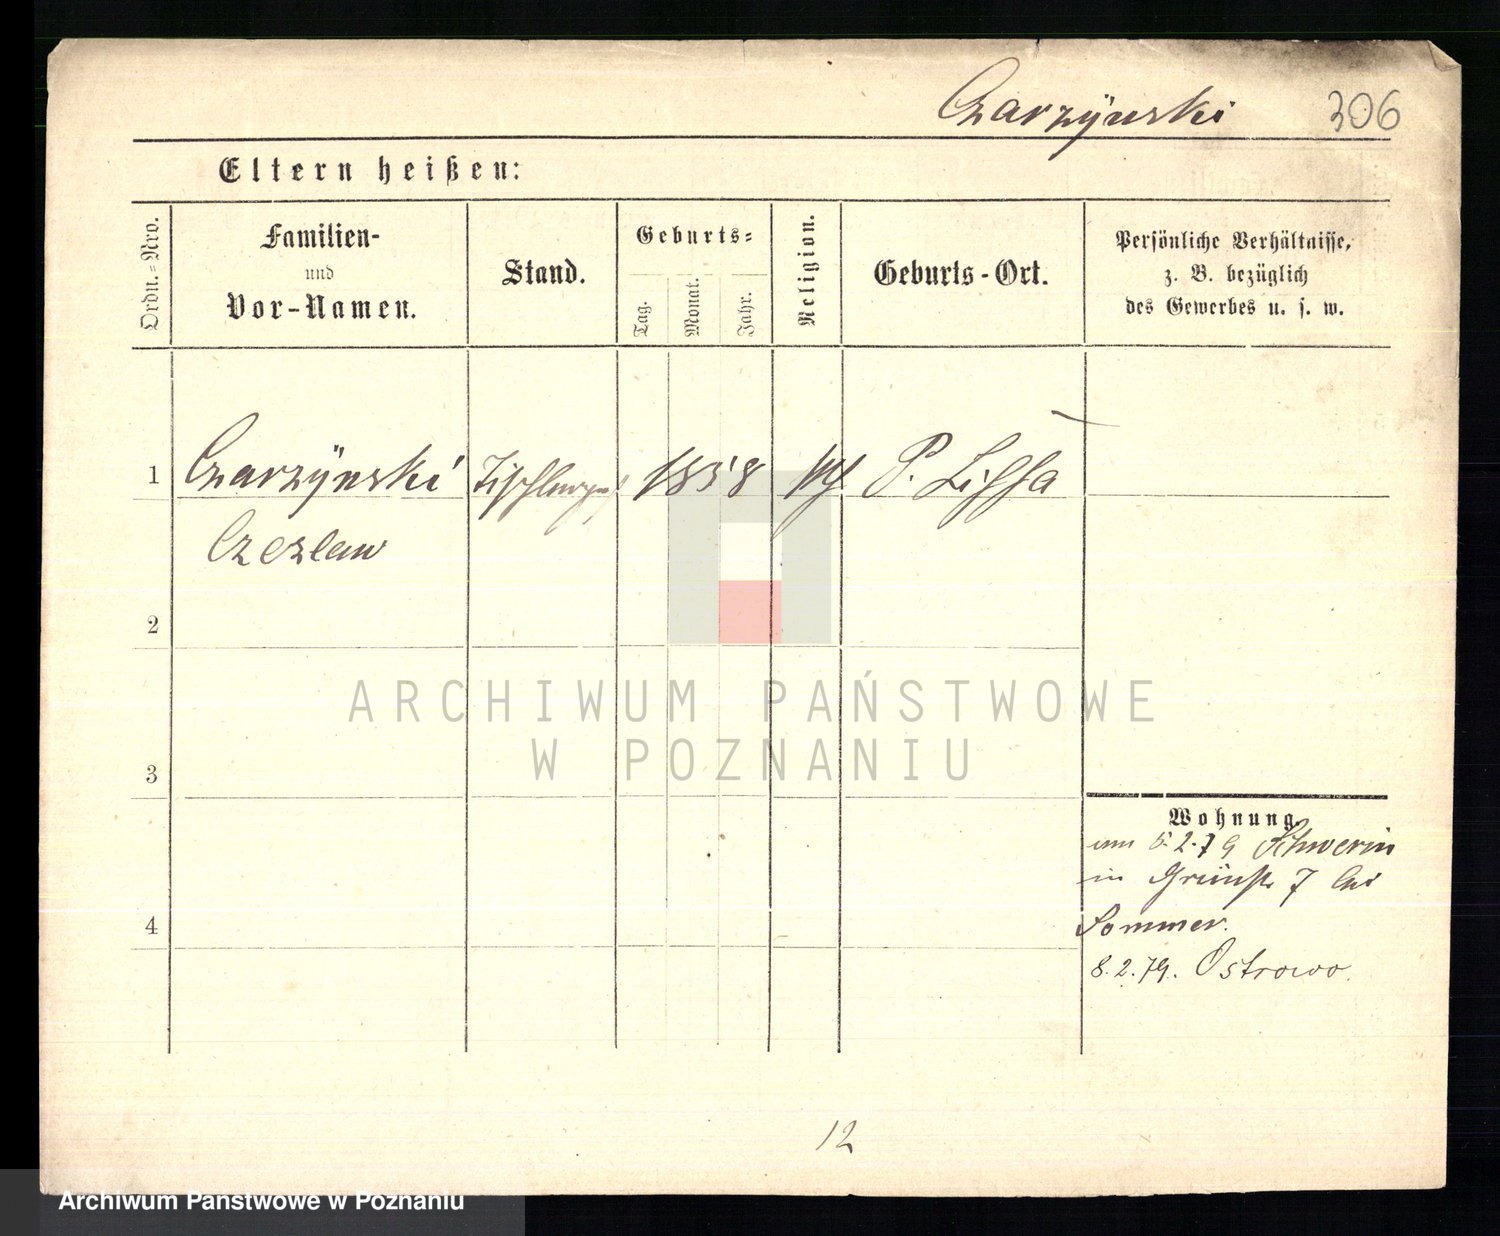 Czarzÿnski 306
Eltern heißen:
Ordn.=Nro.
Familien-
und
Vor-Namen.
Stand.
Geburts=
Tag.
Monat.
Jahr.
Religion.
Geburts-Ort.
Persönliche Verhältnisse,
z. B. bezüglich
des Gewerbes u. s. w.
1 Czarzÿnski 1858 P. Lissa
Czezlaw
2
ARCHIWUM PAŃSTWOWE
W POZNANIU
3
Wohnung.
am 5.2.79 Schwerin
in Grünstr 7 bei
4 Sommer.
8.2.79. Ostrowo.
12
Archiwum Państwowe w Poznaniu